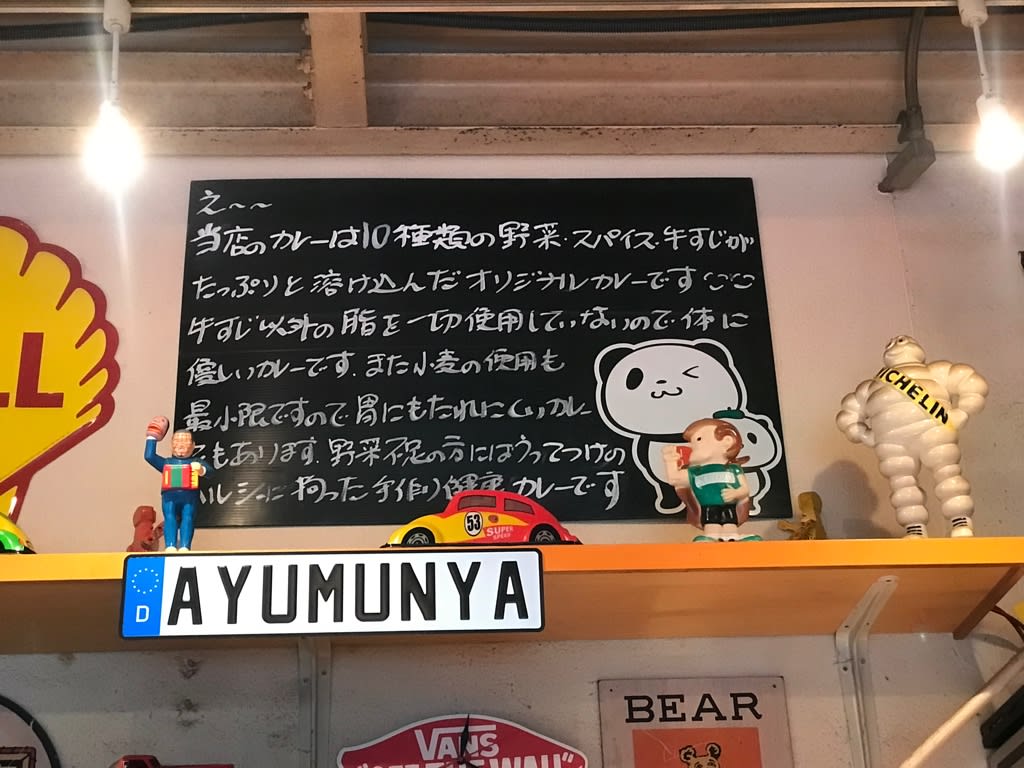 え〜〜
当店のカレーは10種類の野菜・スパイス・牛すじが
たっぷりと溶け込んだオリジナルカレーです
牛すじ以外の脂を一切使用していないので体に
優しいカレーです。また小麦の使用も
最小限ですので胃にもたれにくいカレー
でもあります。野菜不足の方にはうってつけの
ヘルシーに拘った手作り健康カレーです
LL
MICHELIN
53
SUPER
SPEED
D
AYUMUNYA
BEAR
VANS
"OFF THE WALL"